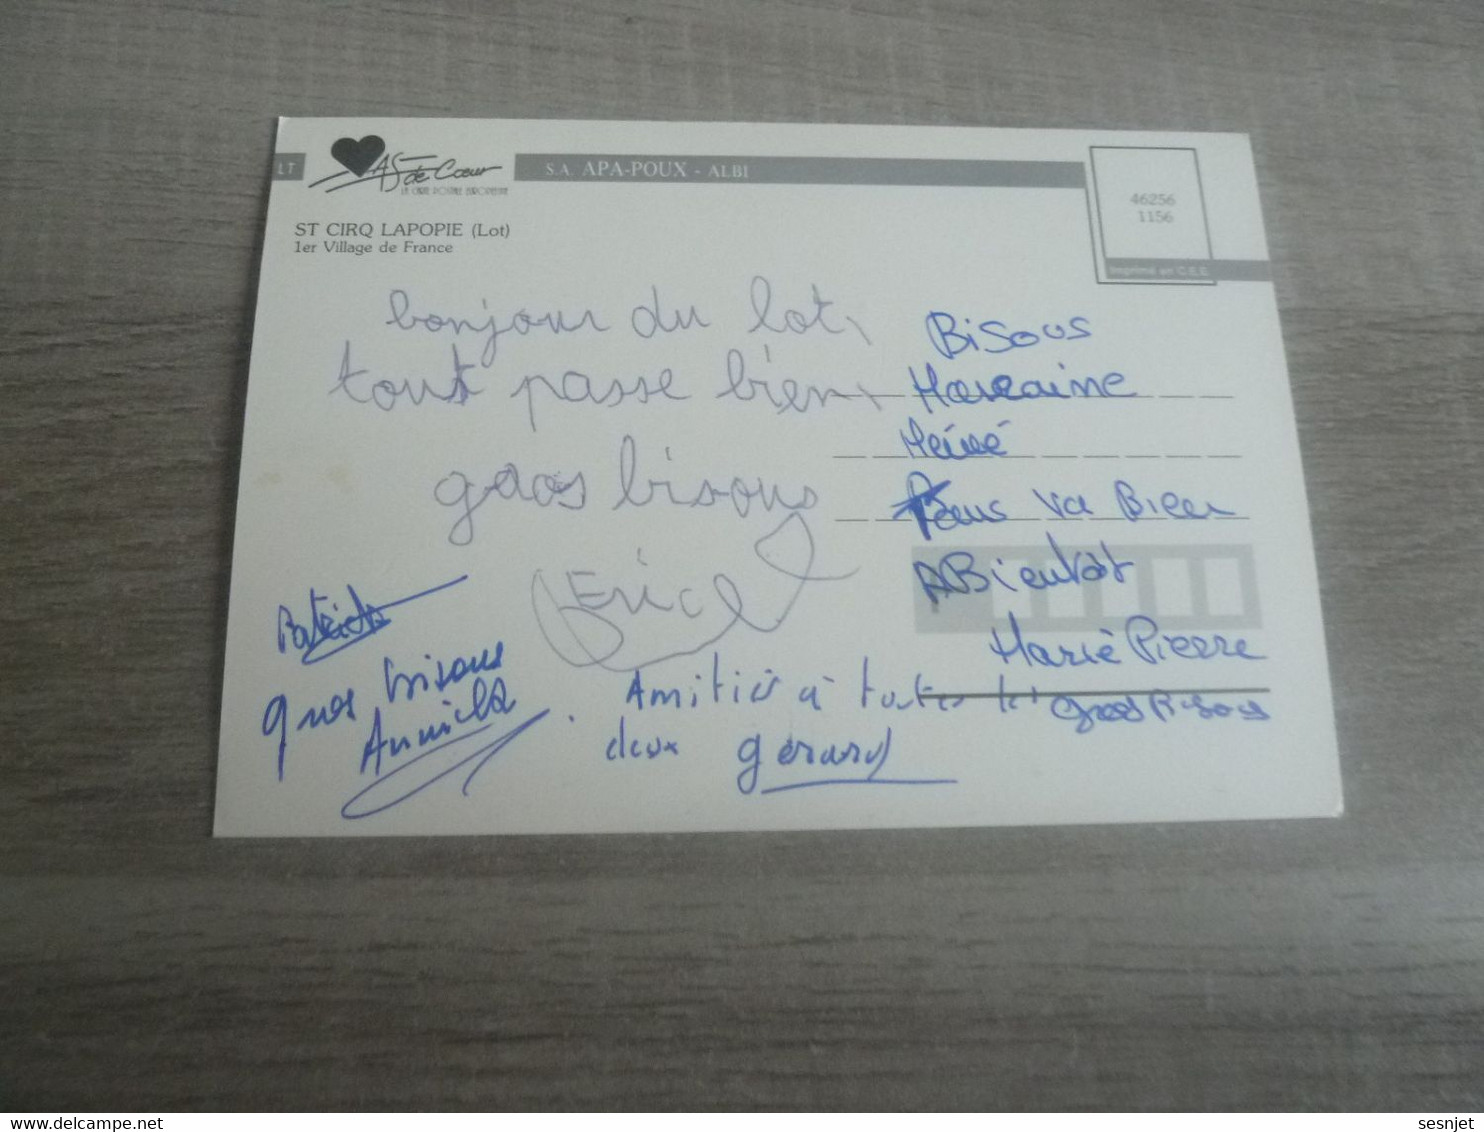 LT
AS de Cœur
LA CARTE POSTALE EUROPEENNE
S.A. APA-POUX - ALBI
46256
1156
Imprimé en C.E.E.
ST CIRQ LAPOPIE (Lot)
1er Village de France
bonjour du lot,
tout passe bien,
gros bisous
Eric
Patrick
gros bisous
Annick
Amitiés à toutes les
deux gérard
Bisous
va Bien
A Bientôt
Marie Pierre
gros Bisous
delcampe.net
sesnjet